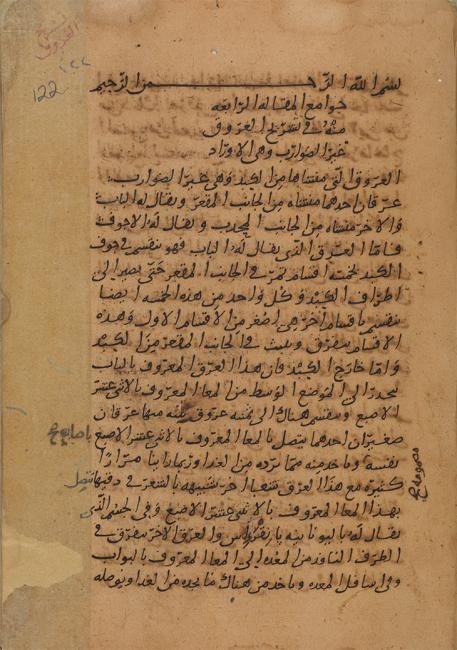 بسم الله الرحمن الرحيم
جوامع المقاله الرابعه
منه في تشريح العروق
غير الضوارب وهي الاوراد
العروق التي منشاها من الكبد وهي غير الضوارب
عرقان احدهما منشاه من الجانب المقعر ويقال له الباب
والاخر منشاه من الجانب المحدب ويقال له الاجوف
فاما العرق الذي يقال له الباب فهو ينقسم في جوف
الكبد بخمسه اقسام تمر في الجانب المقعر حتى يصير الى
اطراف الكبد وكل واحد من هذه الخمسه ايضا
ينقسم باقسام أخر هي اصغر من الاقسام الاول وهذه
الاقسام تتفرق في الجانب المقعر من الكبد
واما خارج الكبد فان هذا العرق المعروف بالباب
ينحدر الى الموضع الوسط من المعا المعروف بالاثنى عشر
الاصبع وينقسم هناك الى ثمنيه عروق ثمنه منها عرقان
صغيران احدهما يتصل بالمعا المعروف بالاثنى عشر الاصبع
نفسه وياخذ منه ما يورده من الغدا وربما راينا مرارًا
كثيره مع هذا العرق شعبا اخر شبيهه بالشعر في دقتها تتصل
بهذا المعا المعروف بالاثنى عشر الاصبع وفي الجسم الذي
يقال له باليونانيه بانقراس والعرق الاخر يتفرق في
الطرف النافذ من المعده الى المعا المعروف بالبواب
وفي اسافل المعده وياخذ من هناك ما يجده من الغدا ويوصله
122